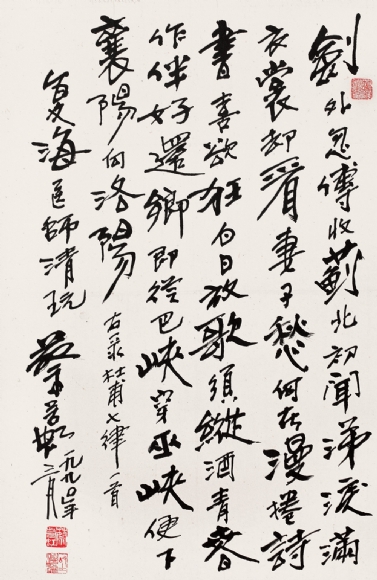 劍外忽傳收薊北初聞涕淚滿
衣裳却看妻子愁何在漫捲詩
書喜欲狂白日放歌須縱酒青春
作伴好還鄉即從巴峽穿巫峽便下
襄陽向洛陽 右录杜甫七律一首
海医師清玩 蔡若虹 一九九〇年